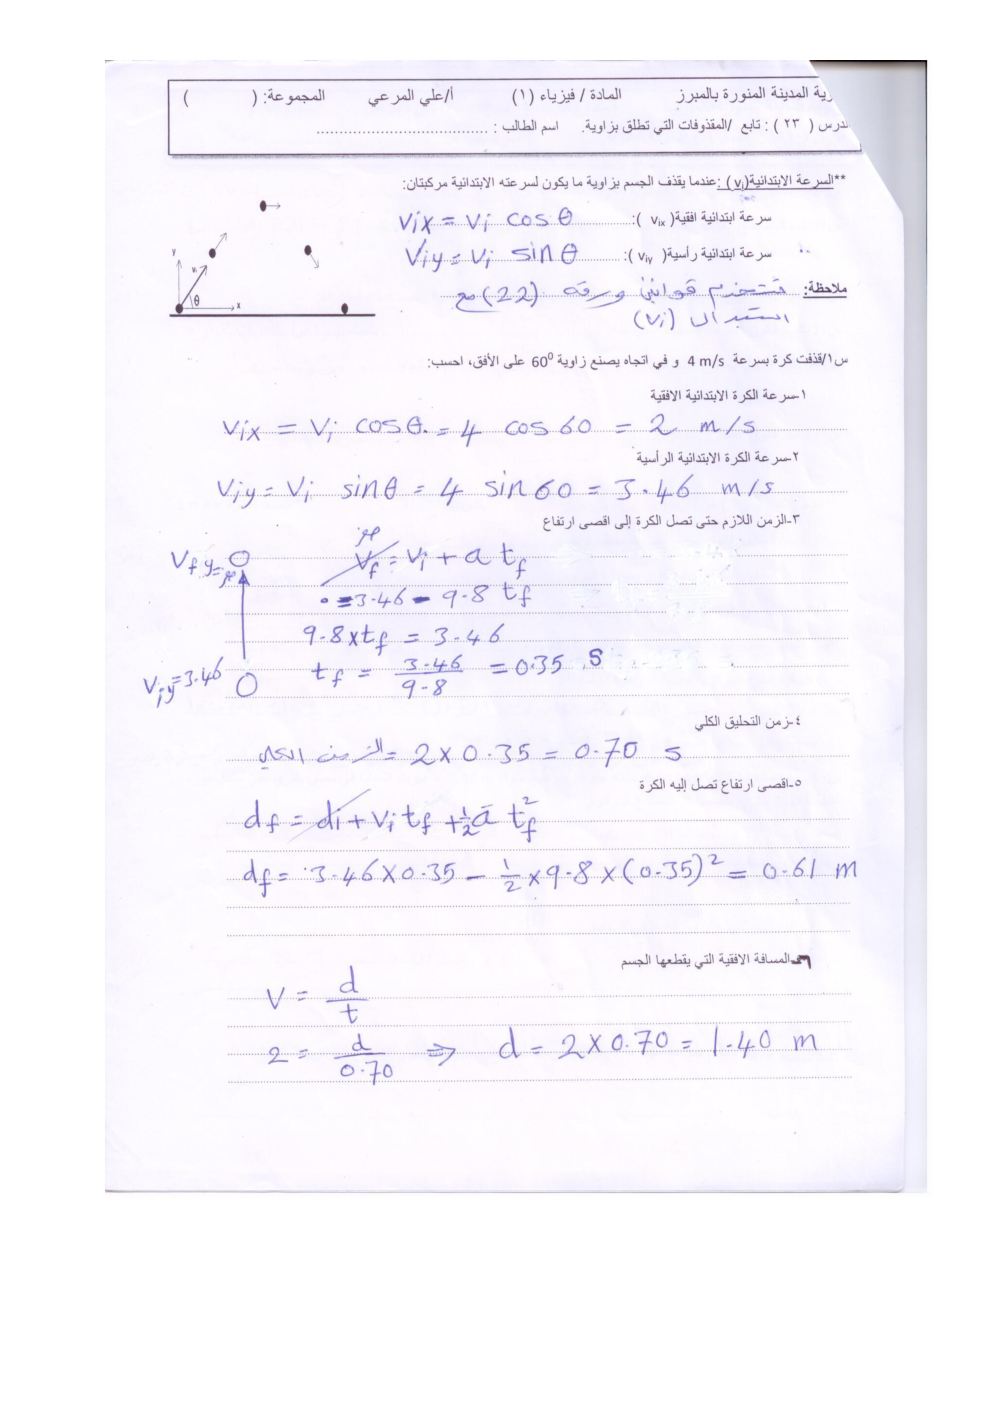 رية المدينة المنورة بالمبرز المادة / فيزياء (١) أ/علي المرعي المجموعة: ( )
درس ( ٢٣ ) : تابع /المقذوفات التي تطلق بزاوية. اسم الطالب : ....................................
**السرعة الابتدائية(vi) :عندما يقذف الجسم بزاوية ما يكون لسرعته الابتدائية مركبتان:
سرعة ابتدائية افقية( vix ): Vix = Vi cos θ
سرعة ابتدائية رأسية( viy ): Viy = Vi sin θ
ملاحظة: نستخدم قوانين ورقه (22) مع
استبدال (Vi)
y
vi
θ
x
س١/قذفت كرة بسرعة 4 m/s و في اتجاه يصنع زاوية 60⁰ على الأفق، احسب:
١-سرعة الكرة الابتدائية الافقية
Vix = Vi cos θ = 4 cos 60 = 2 m/s
٢-سرعة الكرة الابتدائية الرأسية
Viy = Vi sin θ = 4 sin 60 = 3.46 m/s
٣-الزمن اللازم حتى تصل الكرة إلى اقصى ارتفاع
صفر
Vfy=صفر Vf = Vi + a tf
0 = 3.46 - 9.8 tf
9.8 x tf = 3.46
Viy=3.46 tf = 3.46/9.8 = 0.35 s
٤-زمن التحليق الكلي
الزمن الكلي = 2 x 0.35 = 0.70 s
٥-اقصى ارتفاع تصل إليه الكرة
df = di + Vi tf + 1/2 a tf²
df = 3.46 x 0.35 - 1/2 x 9.8 x (0.35)² = 0.61 m
٦-المسافة الافقية التي يقطعها الجسم
V = d/t
2 = d/0.70 ⇒ d = 2 x 0.70 = 1.40 m